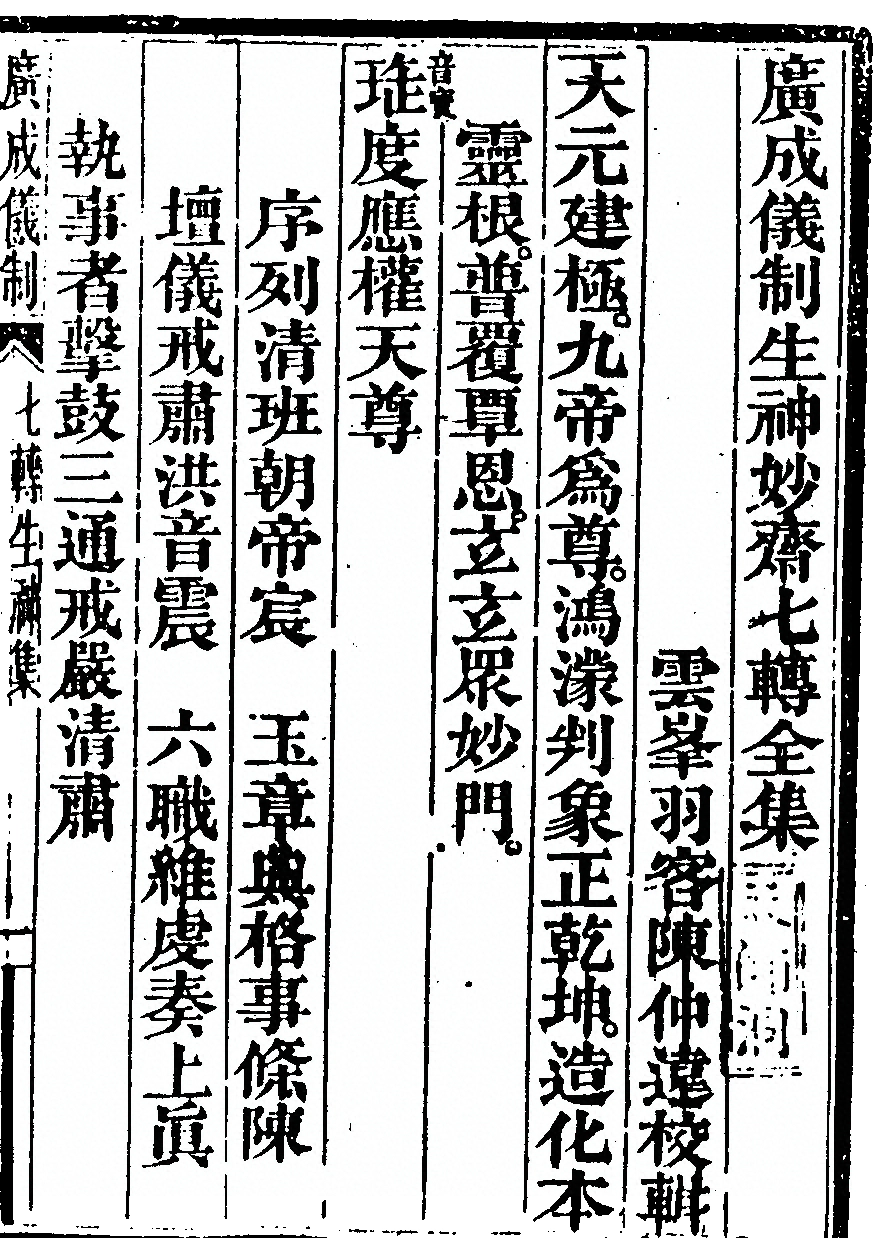 廣成儀制生神妙齋七轉全集
雲峯羽客陳仲遠校輯
天元建極。九帝爲尊。鴻濛判象正乾坤。造化本
靈根。普覆覃恩。立立眾妙門。
音實
琟度應權天尊
序列清班朝帝宸　玉章典格事條陳
壇儀戒肅洪音震　六職維虔奏上眞
執事者擊鼓三通戒嚴清肅
廣成儀制　七轉生神集　一